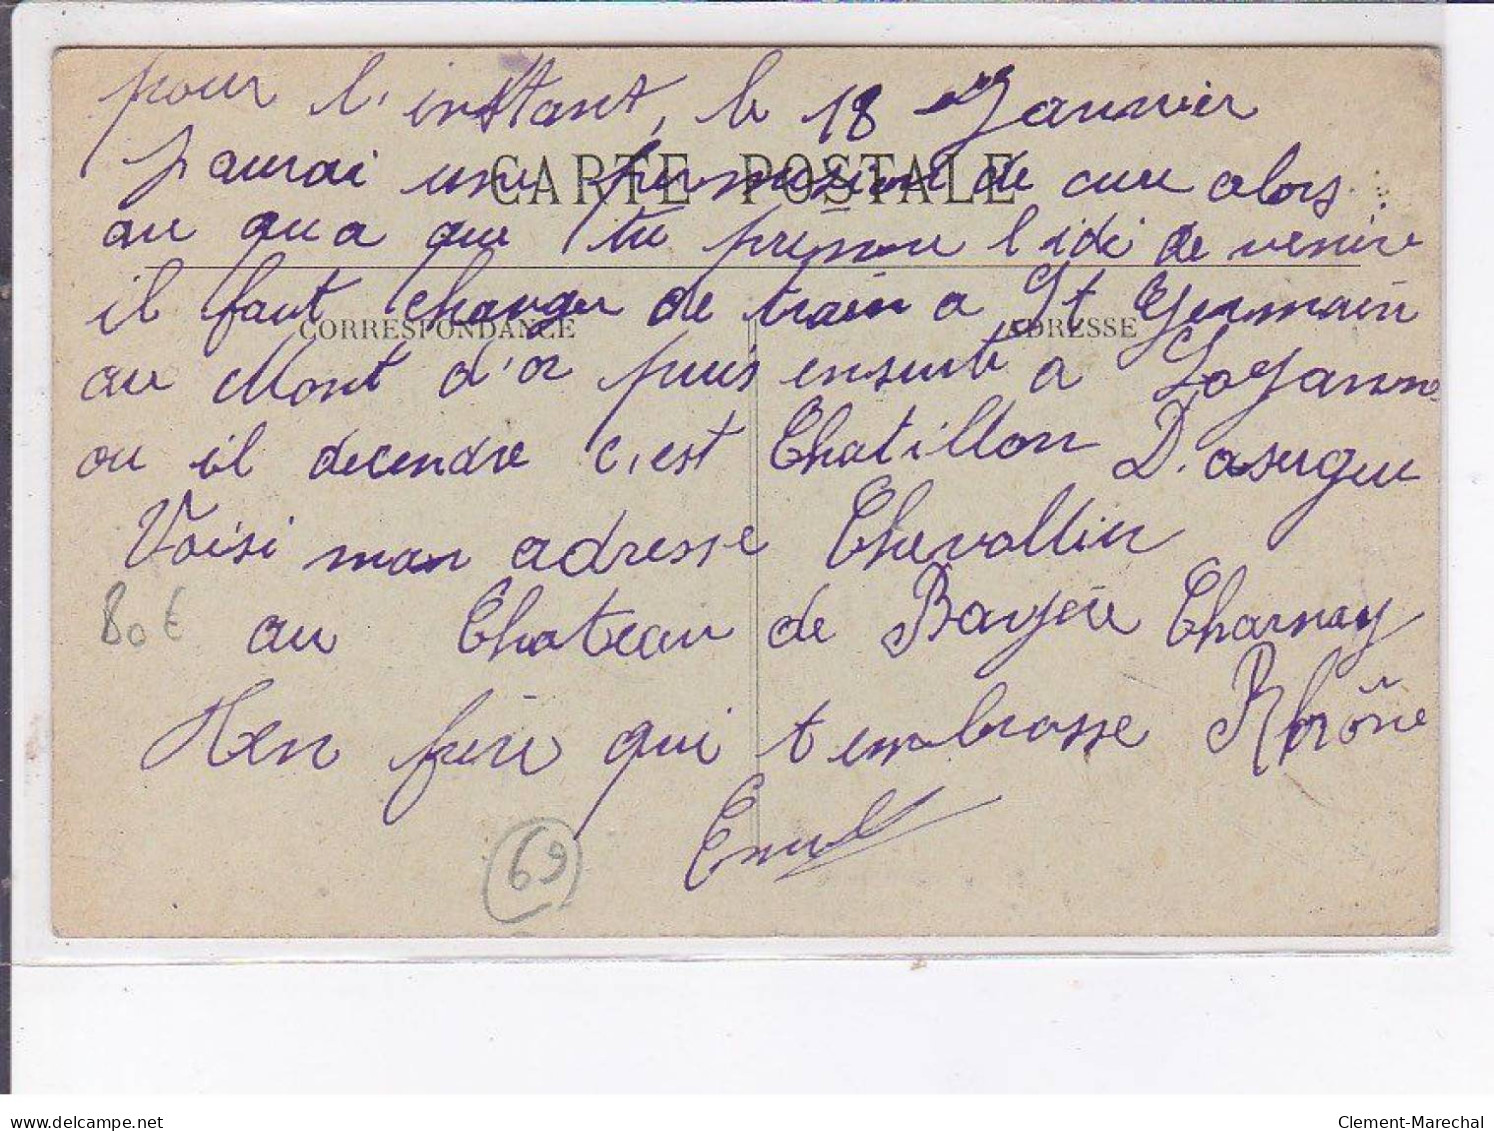 pour l'instant, le 18 Janvier
CARTE POSTALE
jaurai une permission de alors
au qua que tu l'idé de venire
CORRESPONDANCE
ADRESSE
il faut changer de train a St Germain
au Mont d'or puis ensuite a Lozanne
ou il decendre c'est Chatillon D'asergue
Voisi mon adresse Chevallier
80€
au Chateau de Bayere Charnay
Rhône
Ton frère qui t'embrasse
Emile
69
delcampe.net
Clement-Marechal